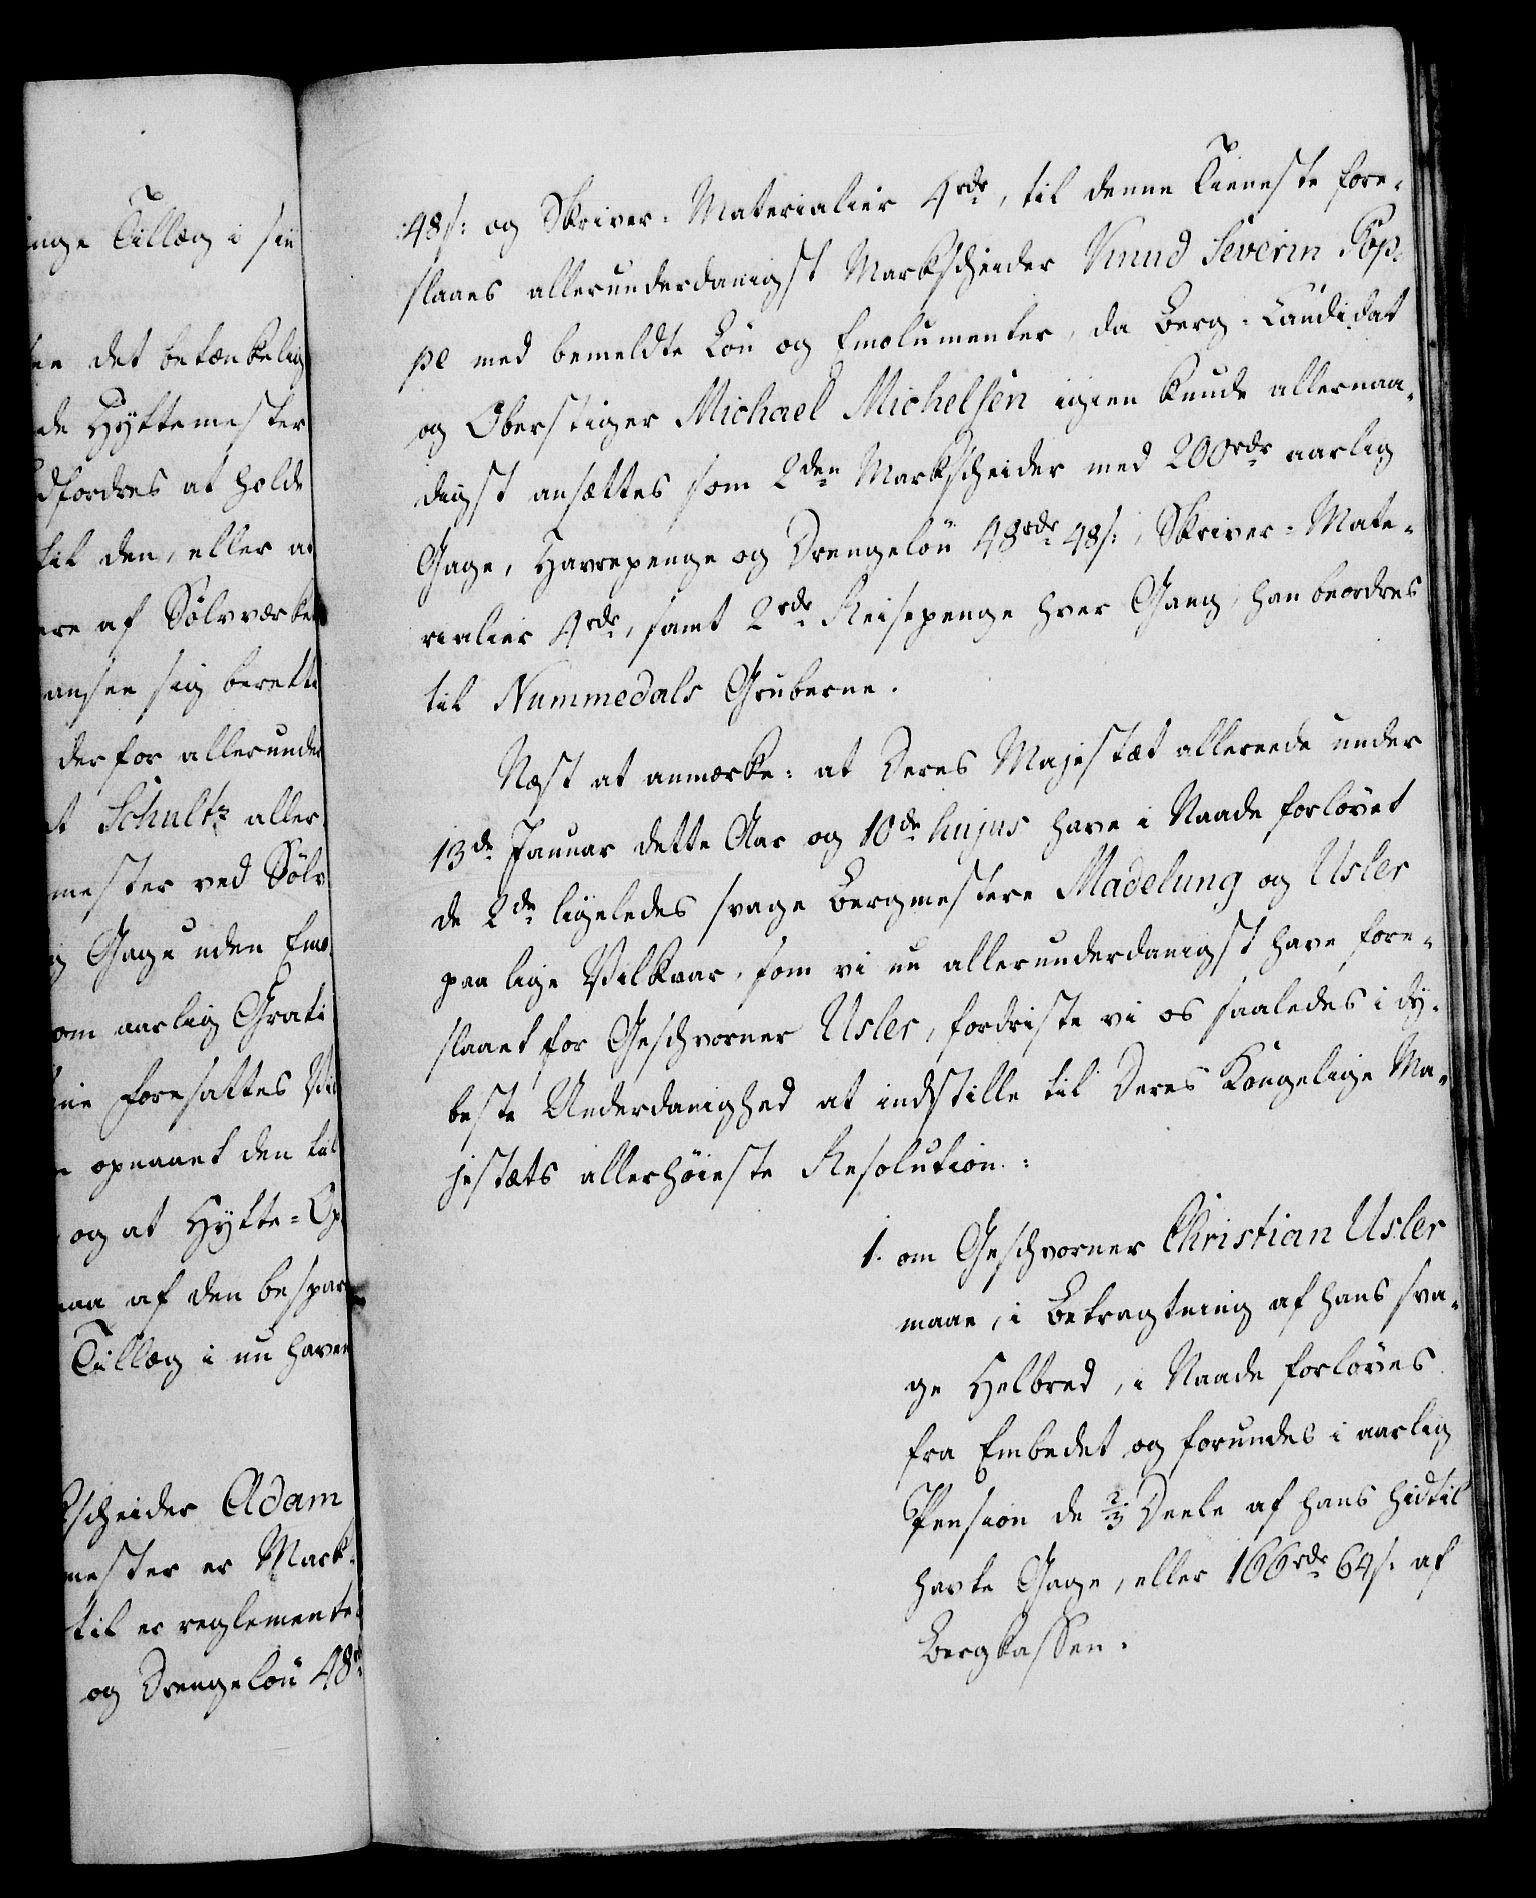 inge Tillæg i sin
det betænkelig
de Hyttemester
udfordres at holde
til den, eller at
ere af Sølvværket
ansee sig beretti
derfor allerunder
Schultz aller
mester ved Sølv
Gage uden Emo
om aarlig Grati
foresattes Vil
opnaaet den til
og at Hytte-Op
maa af den bespar
Tillæg i nu haven
kscheider Adam
mester er Mark-
til er reglemente
og Drengeløn 48rd
48s: og Skriver-Materialier 4rdr, til denne Tieneste fore-
slaaes allerunderdanigst Markscheider Knud Severin Pop-
pe med bemeldte Løn og Emolumenter, da Berg-Candidat
og Oberstiger Michael Michelsen igien kunde allernaa-
digst ansættes som 2den Markscheider med 200rdr aarlig
Gage, Havrepenge og Drengeløn 48rdr 48s:, Skriver-Mate-
rialier 4rdr, samt 2rdr Reisepenge hver Gang, han beordres
til Nummedals Gruberne.
Næst at anmærke: at Deres Majestæt allerede under
13de Januar dette Aar og 10de hujus have i Naade forlovet
de 2de ligeledes svage Bergmestere Madelung og Usler
paa lige Vilkaar, som vi nu allerunderdanigst have fore-
slaaet for Geschvorner Usler, fordriste vi os saaledes i dy-
beste Underdanighed at indstille til Deres Kongelige Ma-
jestæts allerhøieste Resolution:
1. om Geschvorner Christian Usler
maae, i Betragtning af hans sva-
ge Helbred, i Naade forloves
fra Embedet og forundes i aarlig
Pension de 2/3 Deele af hans hidtil
havte Gage, eller 166rdr 64s: af
Bergkassen.